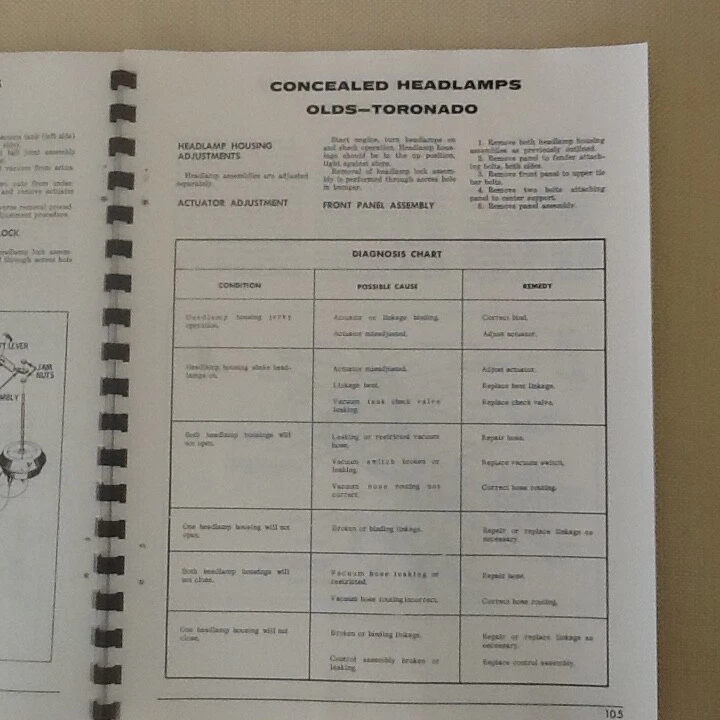 S
vacuum tank (left side)
ball joint assembly
vacuum from actua
nuts from under
and remove actuator
reverse removal proced
adjustment procedure.
LOCK
headlamp lock assem-
through access hole
FT LEVER
JAM
NUTS
MBLY
CONCEALED HEADLAMPS
OLDS—TORONADO
HEADLAMP HOUSING
ADJUSTMENTS
Headlamp assemblies are adjusted
separately.
ACTUATOR ADJUSTMENT
Start engine, turn headlamps on
and check operation. Headlamp hous-
ings should be in the up position,
tight against stops.
Removal of headlamp lock assem-
bly is performed through access hole
in bumper.
FRONT PANEL ASSEMBLY
1. Remove both headlamp housing
assemblies as previously outlined.
2. Remove panel to fender attach-
ing bolts, both sides.
3. Remove front panel to upper tie
bar bolts.
4. Remove two bolts attaching
panel to center support.
5. Remove panel assembly.
DIAGNOSIS CHART
CONDITION POSSIBLE CAUSE REMEDY
Headlamp housing jerky
operation.
Actuator or linkage binding. Correct bind.
Actuator misadjusted. Adjust actuator.
Headlamp housing shake head-
lamps on.
Actuator misadjusted. Adjust actuator.
Linkage bent. Replace bent linkage.
Vacuum tank check valve
leaking.
Replace check valve.
Both headlamp housings will
not open.
Leaking or restricted vacuum
hose.
Repair hose.
Vacuum switch broken or
leaking.
Replace vacuum switch.
Vacuum hose routing not
correct.
Correct hose routing.
One headlamp housing will not
open.
Broken or binding linkage.
Repair or replace linkage as
necessary.
Both headlamp housings will
not close.
Vacuum hose leaking or
restricted.
Repair hose.
Vacuum hose routing incorrect. Correct hose routing.
One headlamp housing will not
close.
Broken or binding linkage.
Repair or replace linkage as
necessary.
Control assembly broken or
leaking.
Replace control assembly.
105